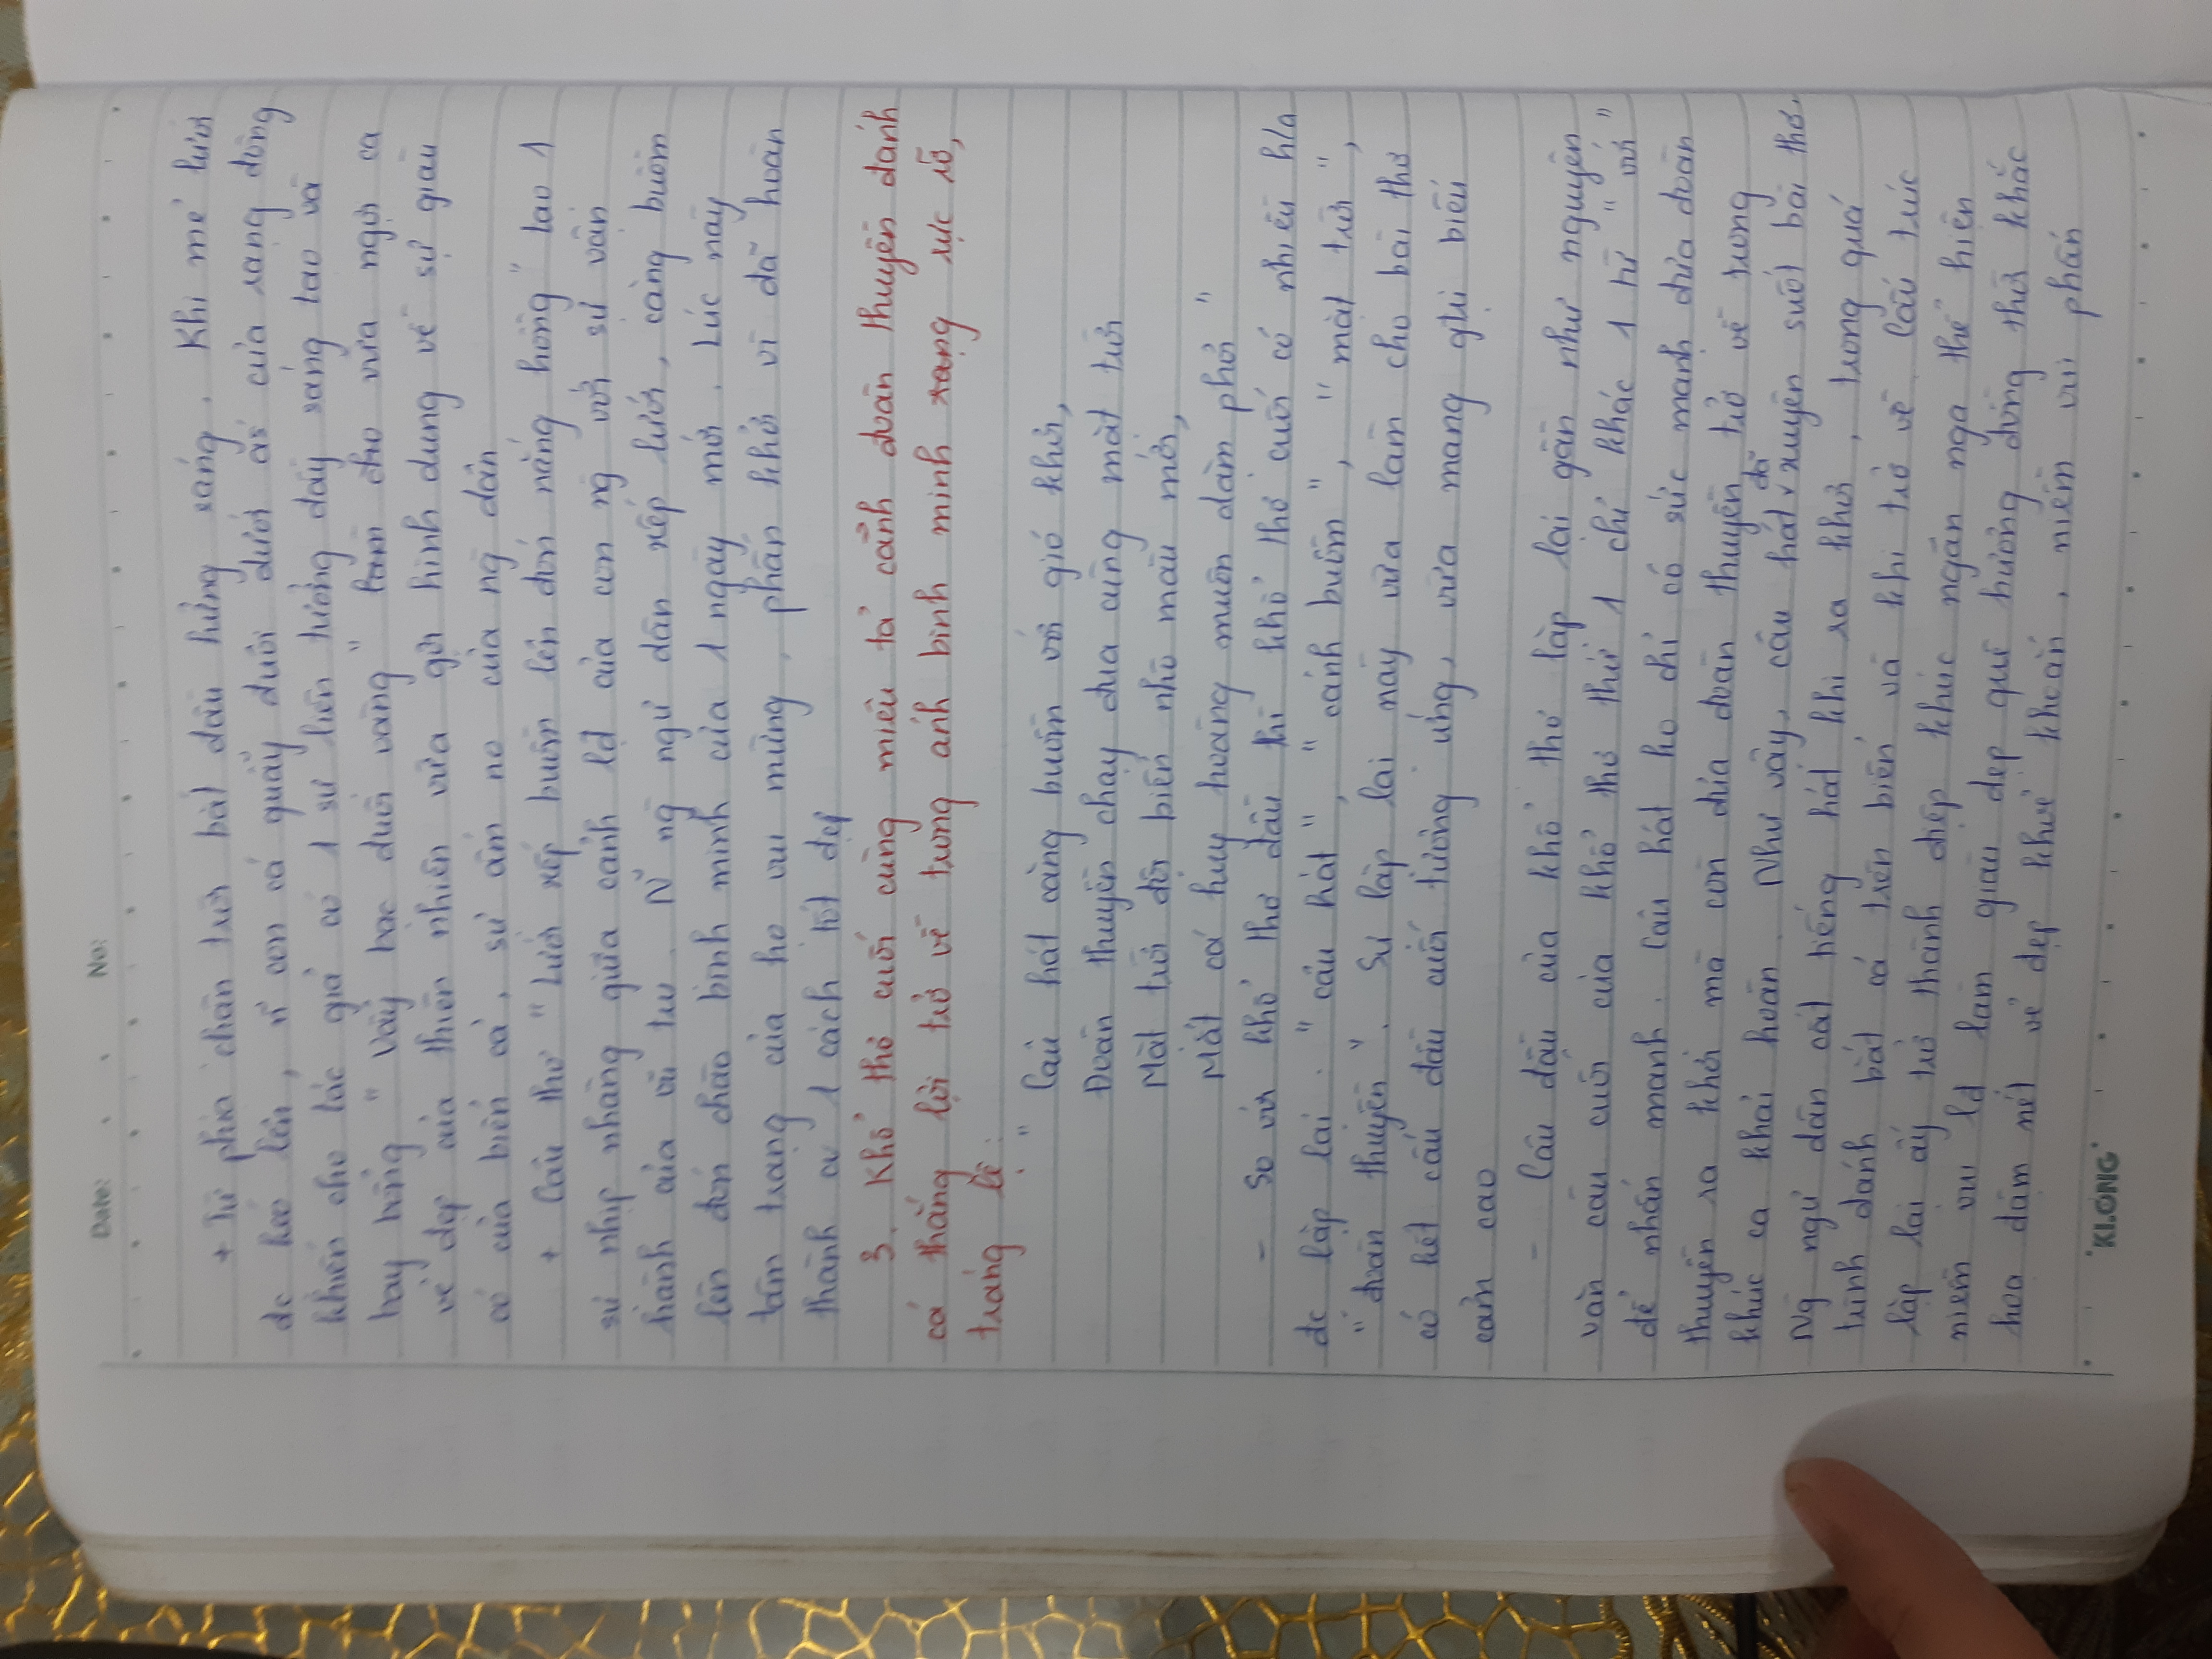 Date: No:
+ Từ phía chân trời bắt đầu hửng sáng. Khi mẻ lưới
đc kéo lên, n~ con cá quẫy đuôi dưới ás của rạng đông
khiến cho tác giả có 1 sự liên tưởng đầy sáng tạo và
bay bổng "Vẩy bạc đuôi vàng" làm cho vừa ngợi ca
vẻ đẹp của thiên nhiên vừa gợi hình dung về sự giàu
có của biển cả, sự ấm no của ng dân
+ Câu thơ "Lưới xếp buồm lên đón nắng hồng" tạo 1
sự nhịp nhàng giữa cảnh lđ của con ng với sự vận
hành của vũ trụ. N~ ng ngư dân xếp lưới, căng buồm
lên đón chào bình minh của 1 ngày mới. Lúc này
tâm trạng của họ vui mừng, phấn khởi vì đã hoàn
thành cv 1 cách tốt đẹp
3. Khổ thơ cuối cùng miêu tả cảnh đoàn thuyền đánh
cá thắng lợi trở về trong ánh bình minh rạng rực rỡ,
tráng lệ:
" Câu hát căng buồm với gió khơi,
Đoàn thuyền chạy đua cùng mặt trời
Mặt trời đội biển nhô màu mới,
Mắt cá huy hoàng muôn dặm phơi "
- So với khổ thơ đầu thì khổ thơ cuối có nhiều h/a
đc lặp lại: "câu hát", "cánh buồm", "mặt trời",
"đoàn thuyền". Sự lặp lại này vừa làm cho bài thơ
có kết cấu đầu cuối tương ứng, vừa mang gtrị biểu
cảm cao
- Câu đầu của khổ thơ lặp lại gần như nguyên
văn câu cuối của khổ thơ thứ 1 chỉ khác 1 từ "với"
để nhấn mạnh. Câu hát ko chỉ có sức mạnh đưa đoàn
thuyền ra khơi mà còn đưa đoàn thuyền trở về trong
khúc ca khải hoàn. Như vậy, câu hát đã xuyên suốt bài thơ.
Ng ngư dân cất tiếng hát khi ra khơi, trong quá
trình đánh bắt cá trên biển và khi trở về. Cấu trúc
lặp lại ấy trở thành điệp khúc ngân nga thể hiện
niềm vui lđ làm giàu đẹp quê hương đồng thời khắc
hoạ đậm nét vẻ đẹp khoẻ khoắn, niềm vui phấn
"KLONG"